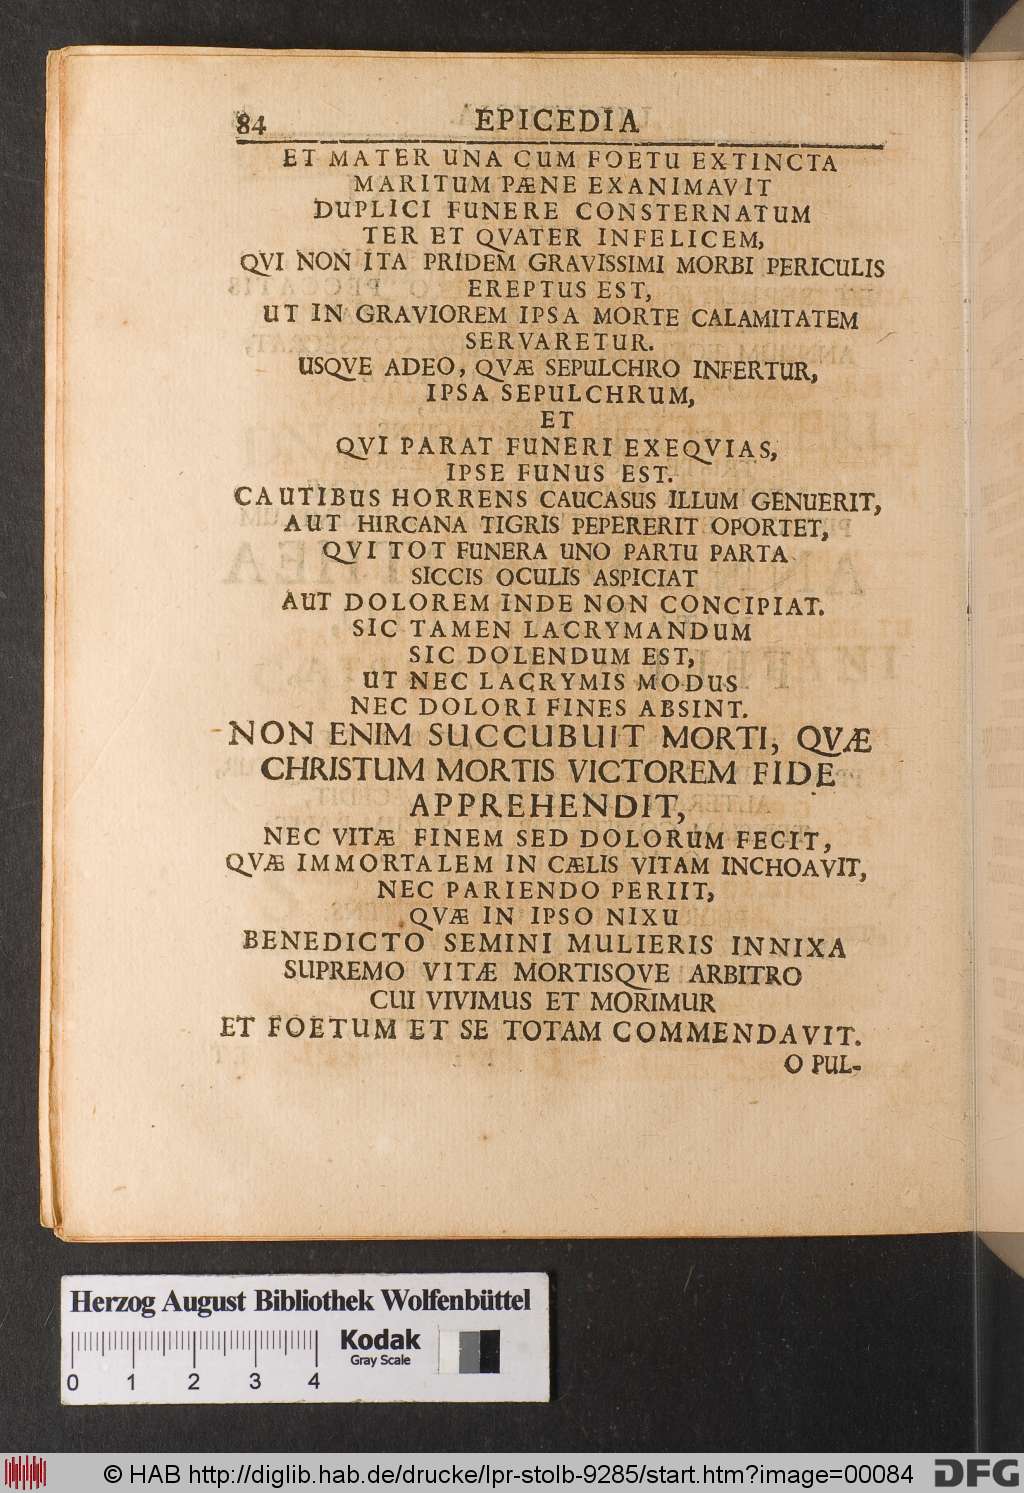 84 EPICEDIA
ET MATER UNA CUM FOETU EXTINCTA
MARITUM PÆNE EXANIMAVIT
DUPLICI FUNERE CONSTERNATUM
TER ET QVATER INFELICEM,
QVI NON ITA PRIDEM GRAVISSIMI MORBI PERICULIS
EREPTUS EST,
UT IN GRAVIOREM IPSA MORTE CALAMITATEM
SERVARETUR.
USQVE ADEO, QVÆ SEPULCHRO INFERTUR,
IPSA SEPULCHRUM,
ET
QVI PARAT FUNERI EXEQVIAS,
IPSE FUNUS EST.
CAUTIBUS HORRENS CAUCASUS ILLUM GENUERIT,
AUT HIRCANA TIGRIS PEPERERIT OPORTET,
QVI TOT FUNERA UNO PARTU PARTA
SICCIS OCULIS ASPICIAT
AUT DOLOREM INDE NON CONCIPIAT.
SIC TAMEN LACRYMANDUM
SIC DOLENDUM EST,
UT NEC LACRYMIS MODUS
NEC DOLORI FINES ABSINT.
NON ENIM SUCCUBUIT MORTI, QVÆ
CHRISTUM MORTIS VICTOREM FIDE
APPREHENDIT,
NEC VITÆ FINEM SED DOLORUM FECIT,
QVÆ IMMORTALEM IN CÆLIS VITAM INCHOAVIT,
NEC PARIENDO PERIIT,
QVÆ IN IPSO NIXU
BENEDICTO SEMINI MULIERIS INNIXA
SUPREMO VITÆ MORTISQVE ARBITRO
CUI VIVIMUS ET MORIMUR
ET FOETUM ET SE TOTAM COMMENDAVIT.
O PUL-
Herzog August Bibliothek Wolfenbüttel
Kodak
Gray Scale
0 1 2 3 4
© HAB http://diglib.hab.de/drucke/lpr-stolb-9285/start.htm?image=00084
DFG